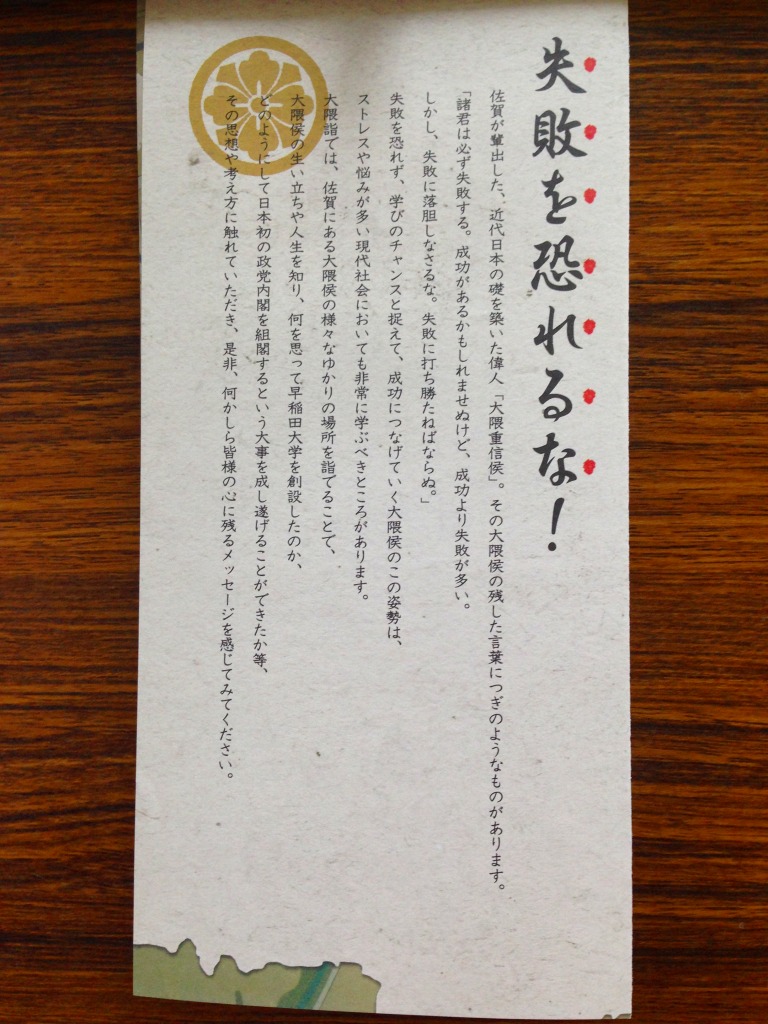 失敗を恐れるな！
佐賀が輩出した、近代日本の礎を築いた偉人「大隈重信侯」。その大隈侯の残した言葉につぎのようなものがあります。
「諸君は必ず失敗する。成功があるかもしれませぬけど、成功より失敗が多い。
しかし、失敗に落胆しなさるな。失敗に打ち勝たねばならぬ。」
失敗を恐れず、学びのチャンスと捉えて、成功につなげていく大隈侯のこの姿勢は、
ストレスや悩みが多い現代社会においても非常に学ぶべきところがあります。
大隈詣では、佐賀にある大隈侯の様々なゆかりの場所を詣でることで、
大隈侯の生い立ちや人生を知り、何を思って早稲田大学を創設したのか、
どのようにして日本初の政党内閣を組閣するという大事を成し遂げることができたか等、
その思想や考え方に触れていただき、是非、何かしら皆様の心に残るメッセージを感じてみてください。